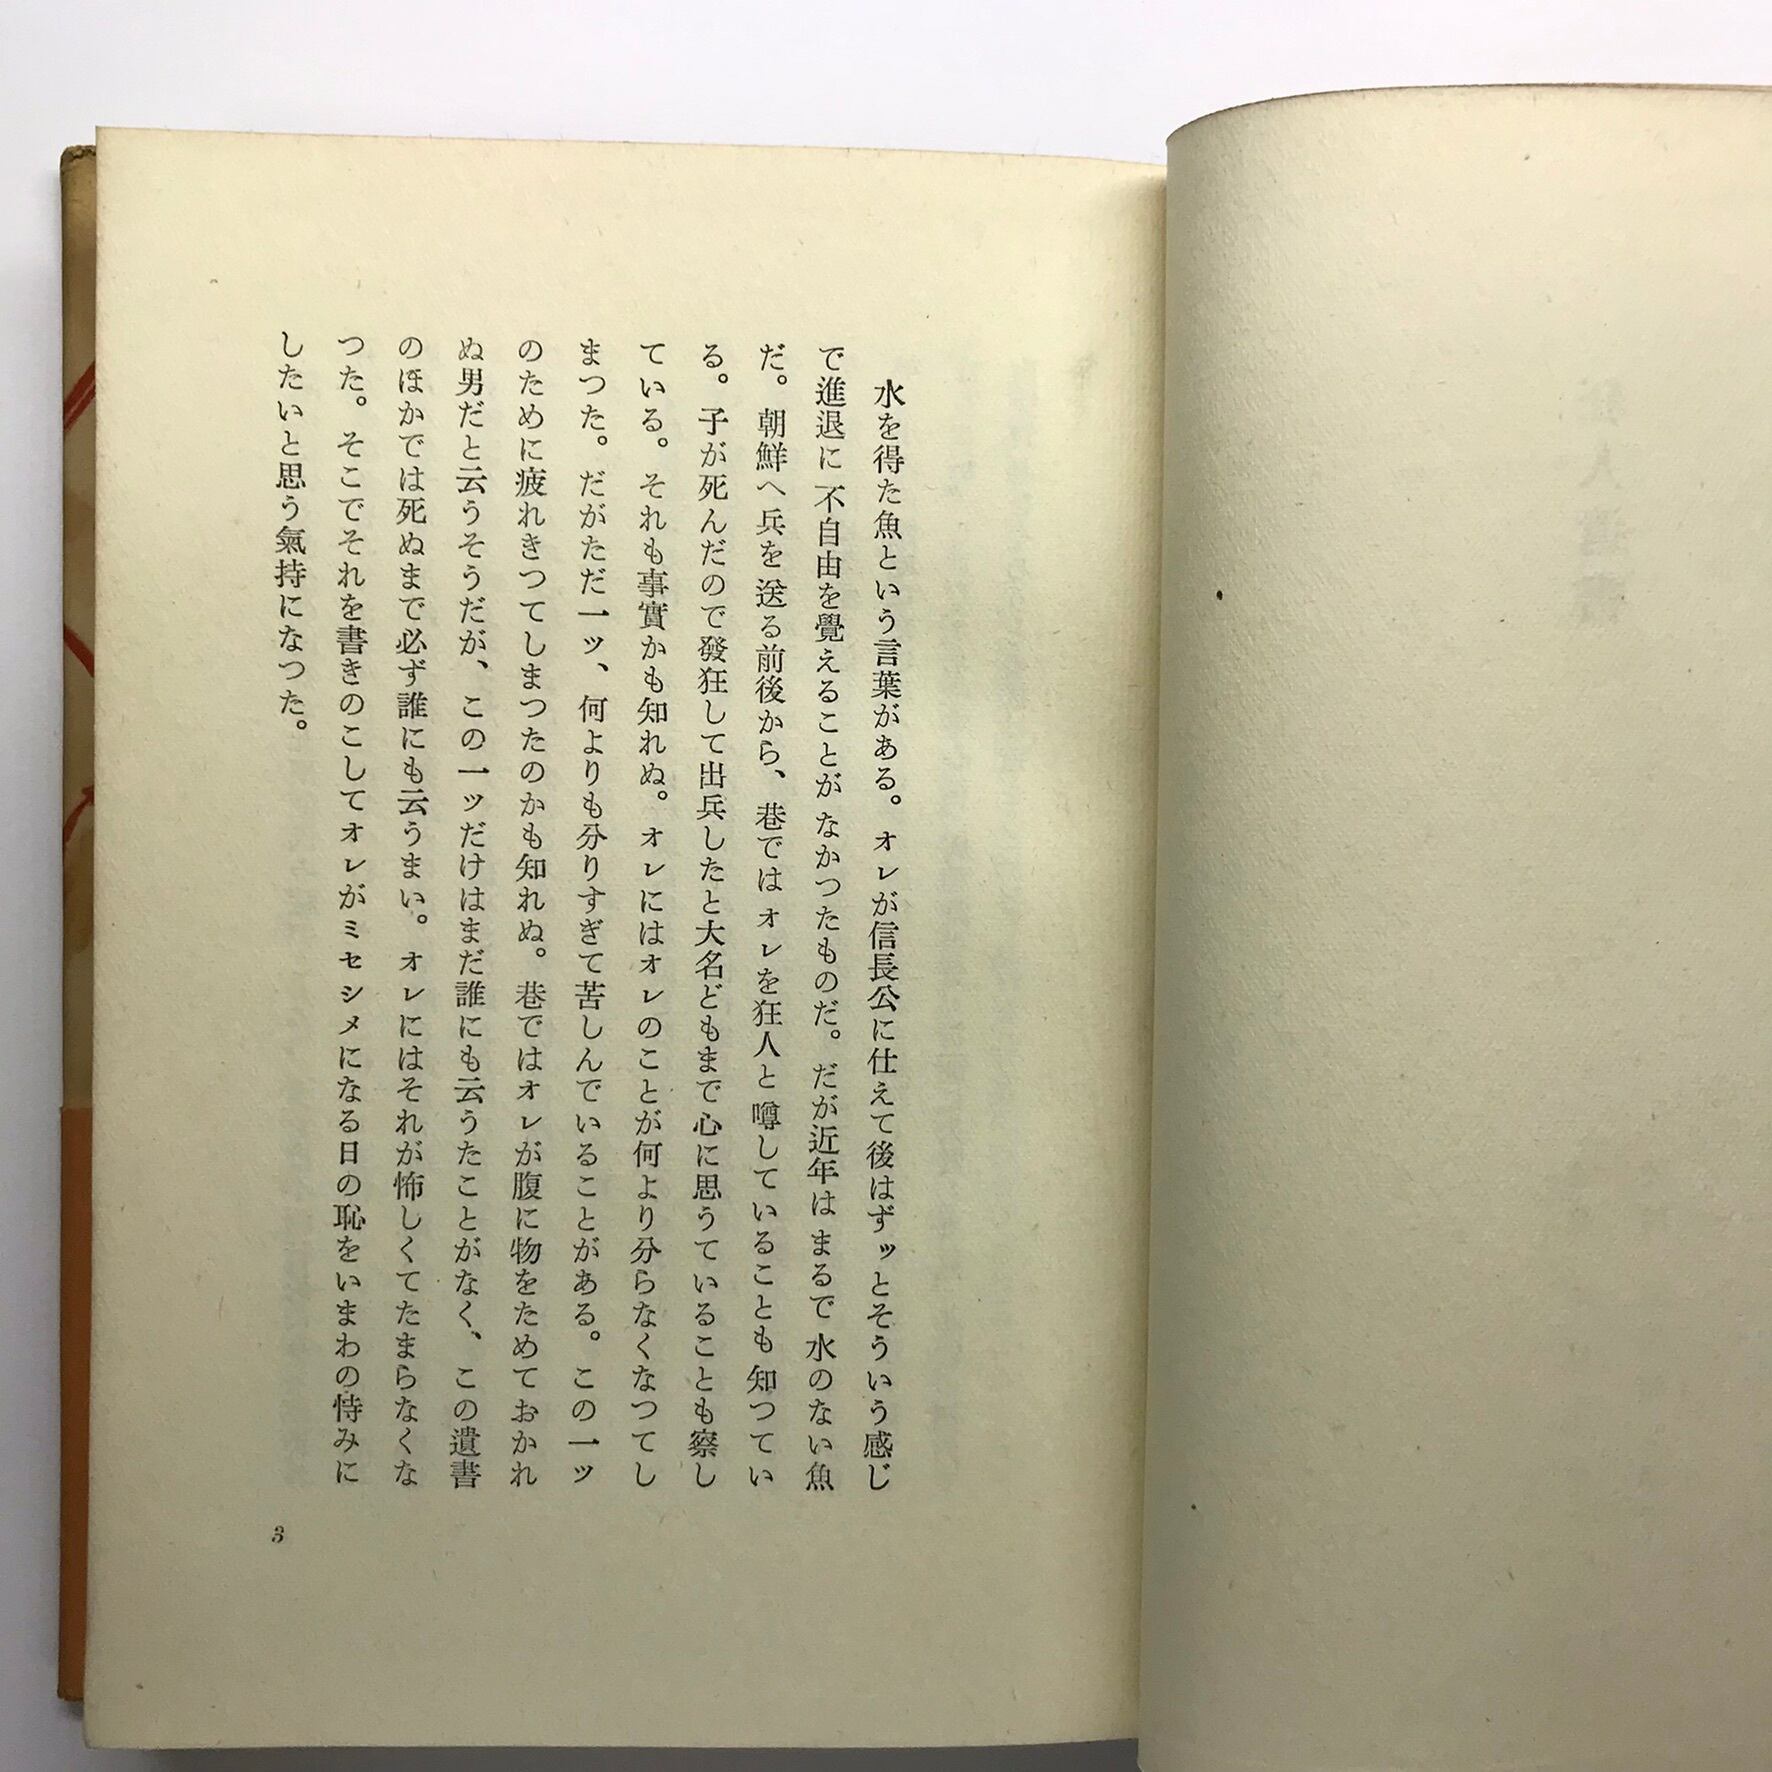 水を得た魚という言葉がある。オレが信長公に仕えて後はずッとそういう感じ
で進退に不自由を覺えることがなかつたものだ。だが近年はまるで水のない魚
だ。朝鮮へ兵を送る前後から、巷ではオレを狂人と噂していることも知つてい
る。子が死んだので發狂して出兵したと大名どもまで心に思うていることも察し
ている。それも事實かも知れぬ。オレにはオレのことが何より分らなくなつてし
まつた。だがただ一ッ、何よりも分りすぎて苦しんでいることがある。この一ッ
のために疲れきつてしまつたのかも知れぬ。巷ではオレが腹に物をためておかれ
ぬ男だと云うそうだが、この一ッだけはまだ誰にも云うたことがなく、この遺書
のほかでは死ぬまで必ず誰にも云うまい。オレにはそれが怖しくてたまらなくな
つた。そこでそれを書きのこしてオレがミセシメになる日の恥をいまわの恃みに
したいと思う氣持になつた。
3